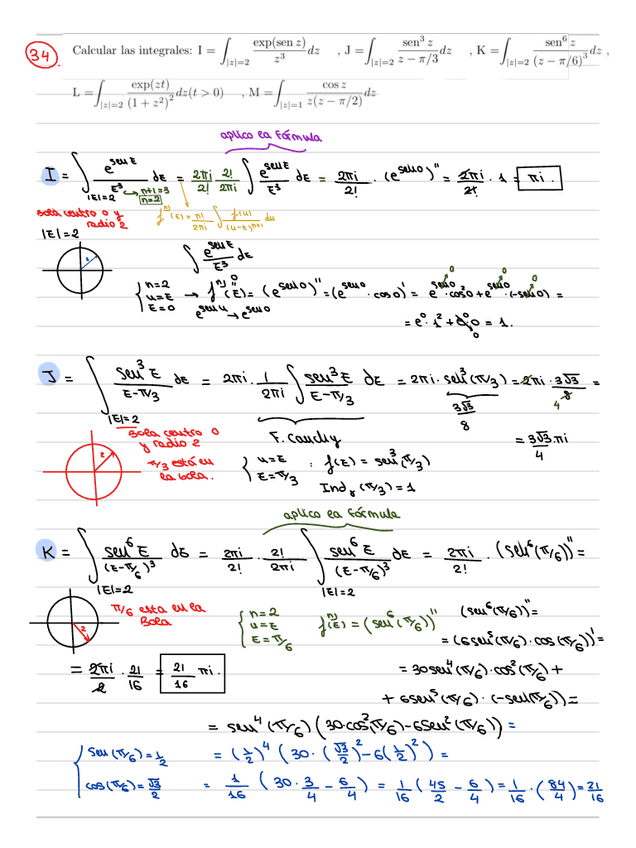 34 Calcular las integrales: I = ∫_{|z|=2} exp(sen z)/z³ dz , J = ∫_{|z|=2} sen³ z/(z − π/3) dz , K = ∫_{|z|=2} sen⁶ z/(z − π/6)³ dz ,
L = ∫_{|z|=2} exp(zt)/(1 + z²)² dz(t > 0) , M = ∫_{|z|=1} cos z/(z(z − π/2)) dz
aplico la fórmula
I = ∫_{|z|=2} e^{sen z}/z³ dz = 2πi/2! · 2!/2πi ∫ e^{sen z}/z³ dz = 2πi/2! · (e^{sen 0})'' = 2πi/2! · 1 = πi.
n+1=3
n=2
bola centro 0 y
radio 2
|z|=2
f^{n)}(z) = n!/2πi ∫ f(u)/(u−z)^{n+1} du
2
∫ e^{sen z}/z³ dz
n=2
u=z
z=0
→ f^{n)}(z) = (e^{sen 0})'' = (e^{sen 0} · cos 0)' = e^{sen 0} · cos² 0 + e^{sen 0} · (−sen 0) =
e^{sen u} → e^{sen 0}
= e⁰ · 1² + e⁰ · 0 = 1.
J = ∫_{|z|=2} sen³ z/(z−π/3) dz = 2πi · 1/2πi ∫ sen³ z/(z−π/3) dz = 2πi · sen³(π/3) = 2πi · 3√3/8 =
4
3√3/8
= 3√3/4 πi
bola centro 0
y radio 2
F. Cauchy
2
π/3 está en
la bola.
u=z
z=π/3
: f(z) = sen³(π/3)
Ind_γ(π/3) = 1
aplico la fórmula
K = ∫_{|z|=2} sen⁶ z/(z−π/6)³ dz = 2πi/2! · 2!/2πi ∫_{|z|=2} sen⁶ z/(z−π/6)³ dz = 2πi/2! · (sen⁶(π/6))'' =
π/6 esta en la
bola
2
n=2
u=z
z=π/6
f^{n)}(z) = (sen⁶(π/6))''
(sen⁶(π/6))'' =
= (6sen⁵(π/6) · cos(π/6))' =
= 2πi/2 · 21/16 = 21/16 πi.
= 30sen⁴(π/6) · cos²(π/6) +
+ 6sen⁵(π/6) · (−sen(π/6)) =
= sen⁴(π/6) (30·cos²(π/6) − 6sen²(π/6)) =
sen(π/6) = 1/2
cos(π/6) = √3/2
= (1/2)⁴ (30 · (√3/2)² − 6(1/2)²) =
= 1/16 (30 · 3/4 − 6/4) = 1/16 (45/2 − 6/4) = 1/16 · (84/4) = 21/16